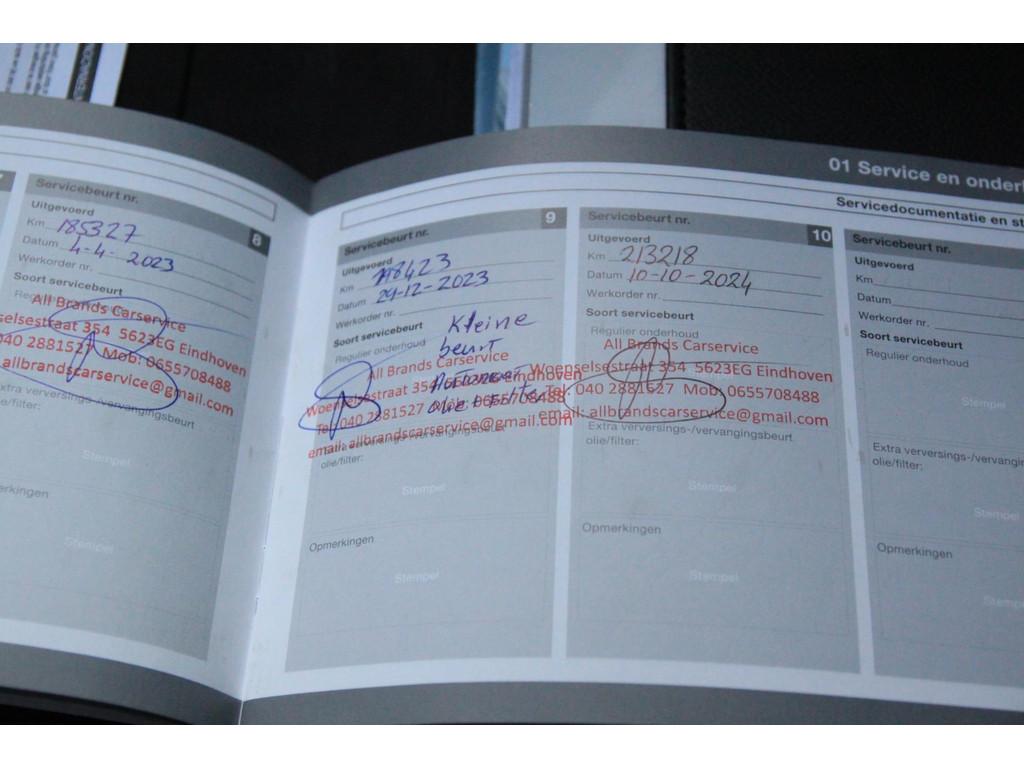 01 Service en onder
Servicedocumentatie en st
Servicebeurt nr.
8
Uitgevoerd
Km 185327
Datum 4-4-2023
Werkorder nr.
Soort servicebeurt
All Brands Carservice
selsestraat 354 5623EG Eindhoven
040 2881527 Mob: 0655708488
allbrandscarservice@gmail.com
Extra verversings-/vervangingsbeurt
olie/filter:
Stempel
erkingen
Stempel
Servicebeurt nr.
9
Uitgevoerd
Km 198423
Datum 29-12-2023
Werkorder nr.
Soort servicebeurt
Kleine
Regulier onderhoud beurt
All Brands Carservice
Woenselsestraat 354 5623EG Eindhoven
Tel: 040 2881527 Mob: 0655708488
olie + filter
email: allbrandscarservice@gmail.com
Extra verversings-/vervangingsbeurt
olie/filter:
Stempel
Opmerkingen
Stempel
Servicebeurt nr.
10
Uitgevoerd
Km 213218
Datum 10-10-2024
Werkorder nr.
Soort servicebeurt
Regulier onderhoud
All Brands Carservice
Woenselsestraat 354 5623EG Eindhoven
Tel: 040 2881527 Mob: 0655708488
email: allbrandscarservice@gmail.com
Extra verversings-/vervangingsbeurt
olie/filter:
Stempel
Opmerkingen
Stempel
Servicebeurt nr.
Uitgevoerd
Km
Datum
Werkorder nr.
Soort servicebeurt
Regulier onderhoud
Stempel
Extra verversings-/vervanging
olie/filter:
Stempel
Opmerkingen
Stempel